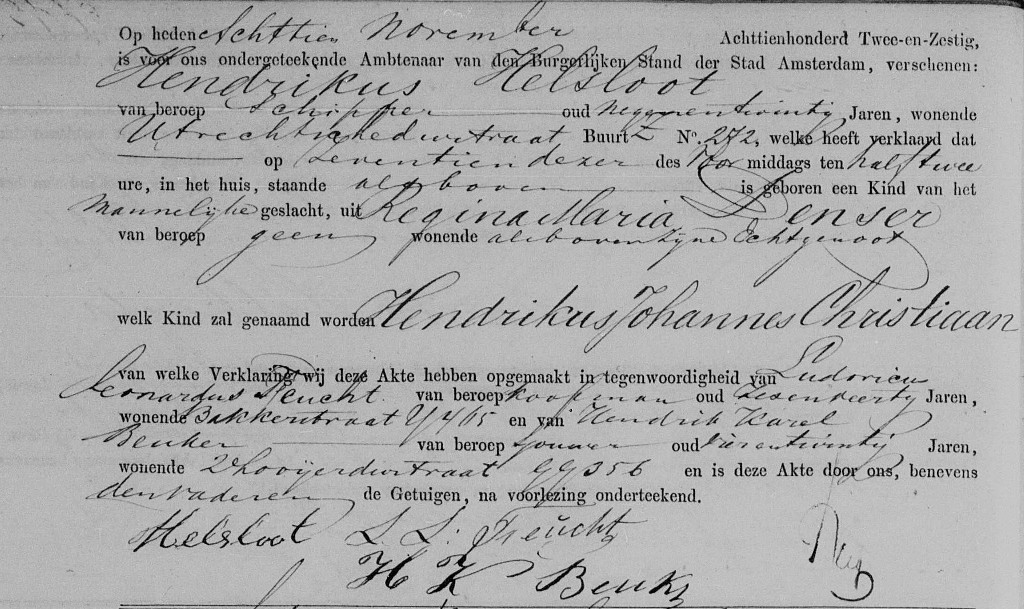 Op heden Achttien November Achttienhonderd Twee-en-Zestig,
is voor ons ondergeteekende Ambtenaar van den Burgerlijken Stand der Stad Amsterdam, verschenen:
Hendrikus Helsloot
van beroep Schipper oud negenentwintig Jaren, wonende
Utrechtschedwstraat Buurt Z No. 272, welke heeft verklaard dat
op Zeventien dezer des Voor middags ten half twee
ure, in het huis, staande als boven is geboren een Kind van het
Mannelijke geslacht, uit Regina Maria Denser
van beroep geen wonende als boven zijne Echtgenoot
welk Kind zal genaamd worden Hendrikus Johannes Christiaan
van welke Verklaring wij deze Akte hebben opgemaakt in tegenwoordigheid van Ludovicus
Leonardus Feucht van beroep koopman oud Zesenveertig Jaren,
wonende Bakkerstraat 465 en van Hendrik Karel
Beuker van beroep oud Vierentwintig Jaren,
wonende GG 356 en is deze Akte door ons, benevens
den vader en de Getuigen, na voorlezing onderteekend.
Helsloot L. L. Feucht
H K Beuker